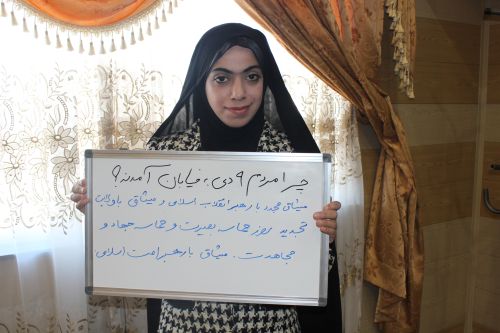 چرا مردم ۹ دی به خیابان آمدند؟
میثاق مجدد با رهبر انقلاب اسلامی و میثاق با ولایت
تجدید روز حماسه بصیرت و حماسه جهاد و
مجاهدت. میثاق با رهبر امت اسلامی